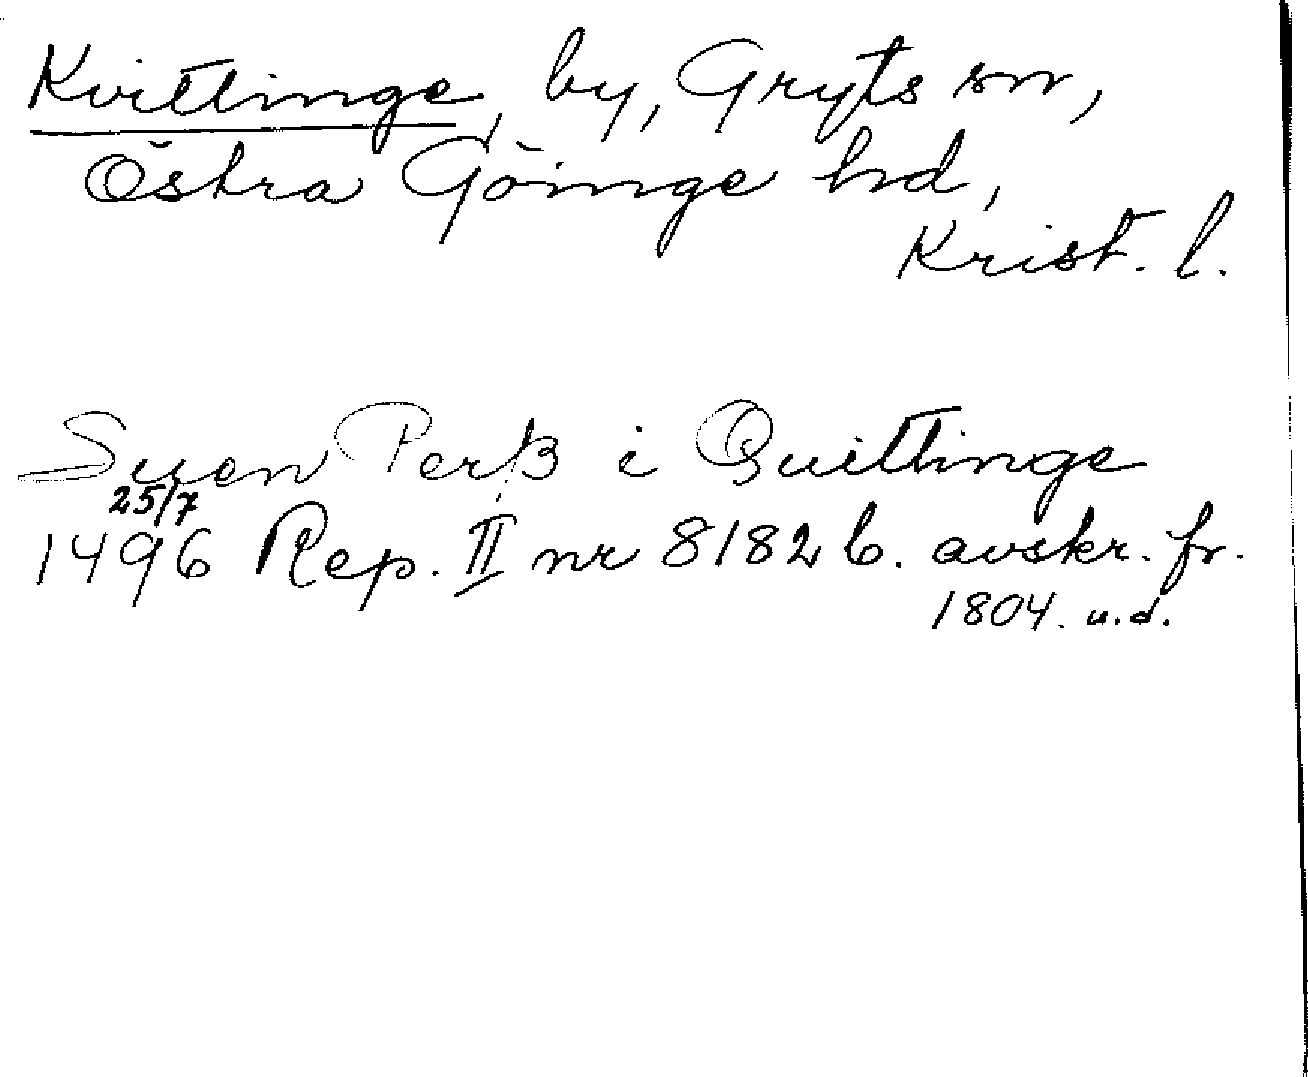 Kvittinge, by, Gryts sn,
Östra Göinge hd,
Krist. l.
Suen Perß i Quittinge
25/7
1496 Rep. II nr 8182 b. avskr. fr.
1804. u.d.